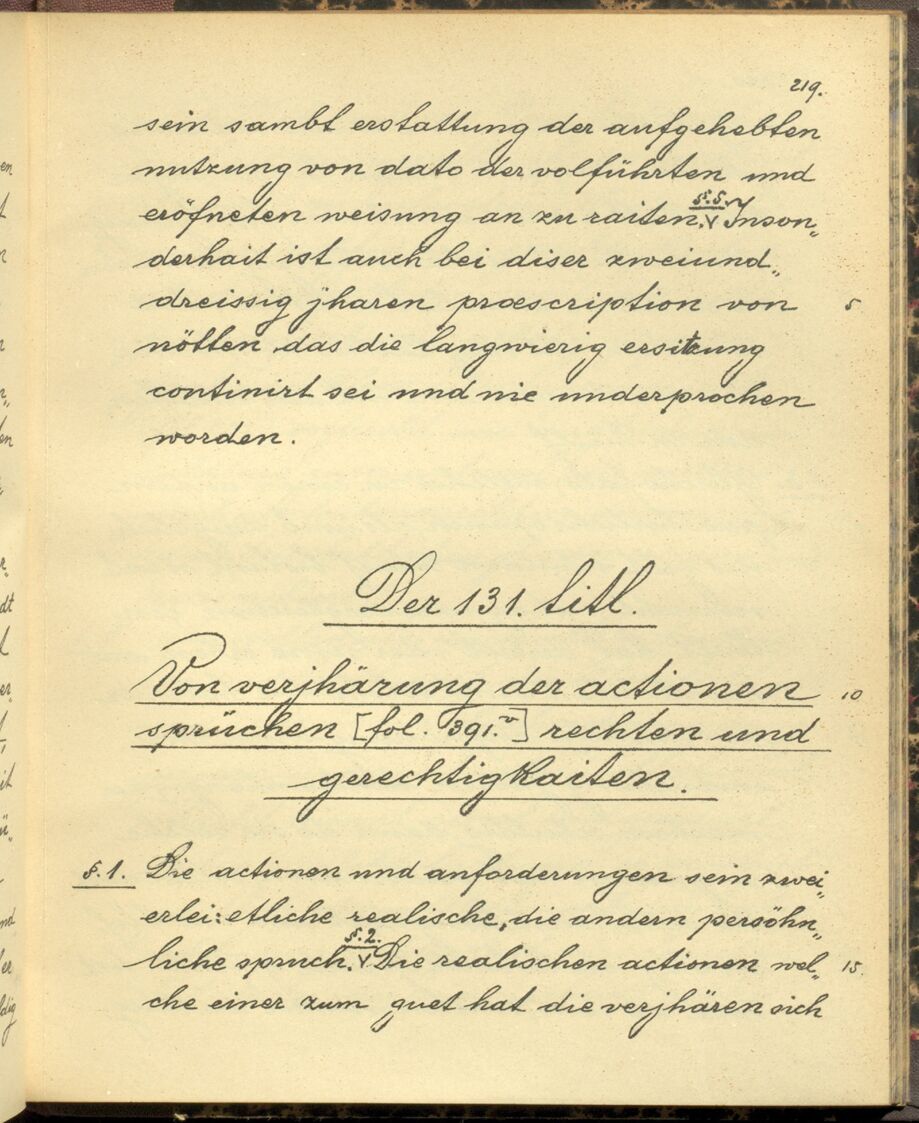 219.
sein sambt erstattung der aufgehebten
nutzung von dato der volführten und
eröfneten weisung an zu raiten. §.5. Inson„
derhait ist auch bei diser zweiund„
dreissig jharen præscription von 5
nötten das die langwierig ersitzung
continirt sei und nie underprochen
worden.
Der 131. titl.
Von verjhärung der actionen 10
sprüchen [fol. 391.v] rechten und
gerechtigkaiten.
§.1. Die actionen und anforderungen sein zwei„
erlei: etliche realische, die andern persöhn„
liche spruch. §.2. Die realischen actionen wel„ 15.
che einer zum guet hat die verjhären sich